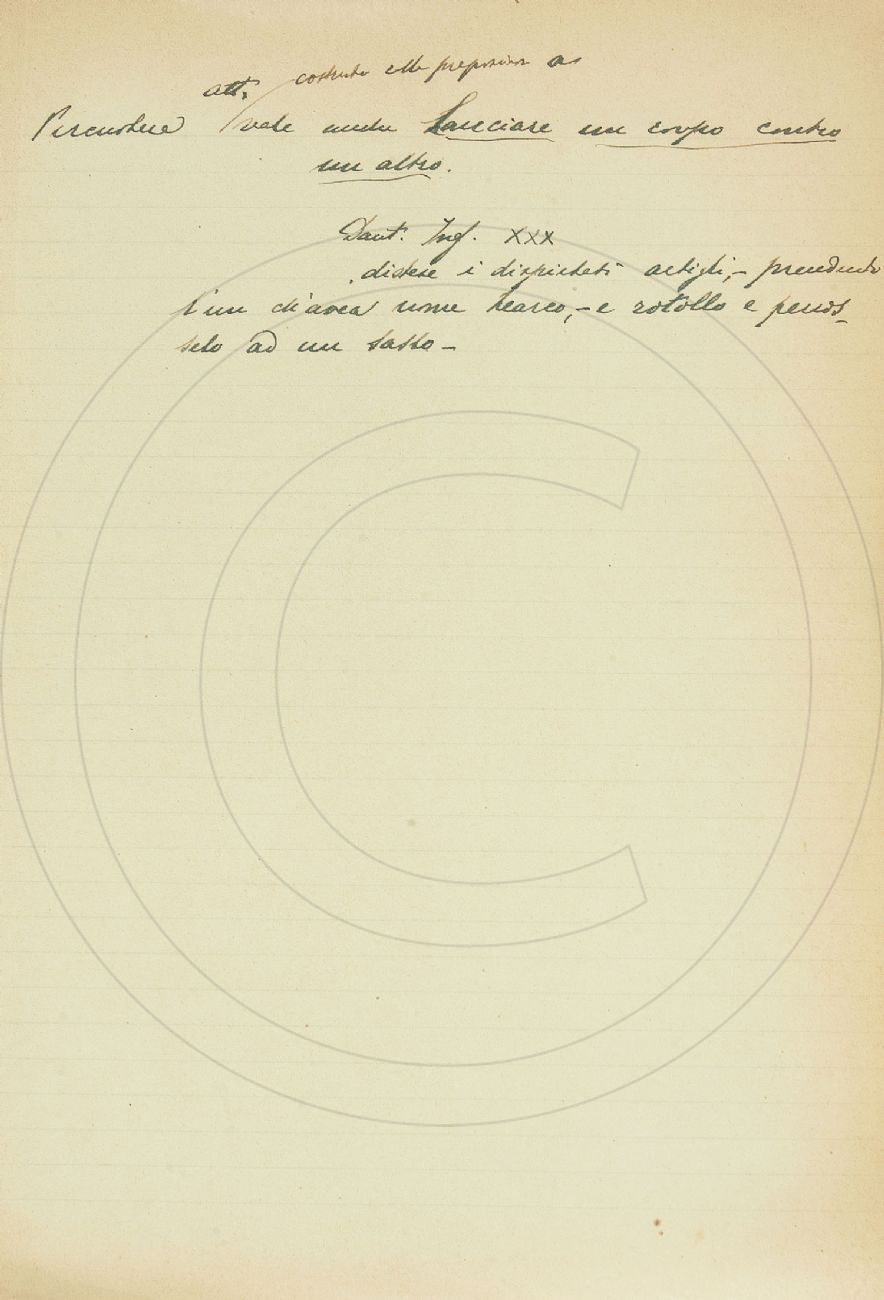 att. costruito colla preposizione a
Percuotere vale anche Lanciare un corpo contro
un altro.
Dant. Inf. XXX
distese i dispietati artigli,- prendendo
l'un ch'avea nome Learco,- e rotollo e percos-
selo ad un sasso -